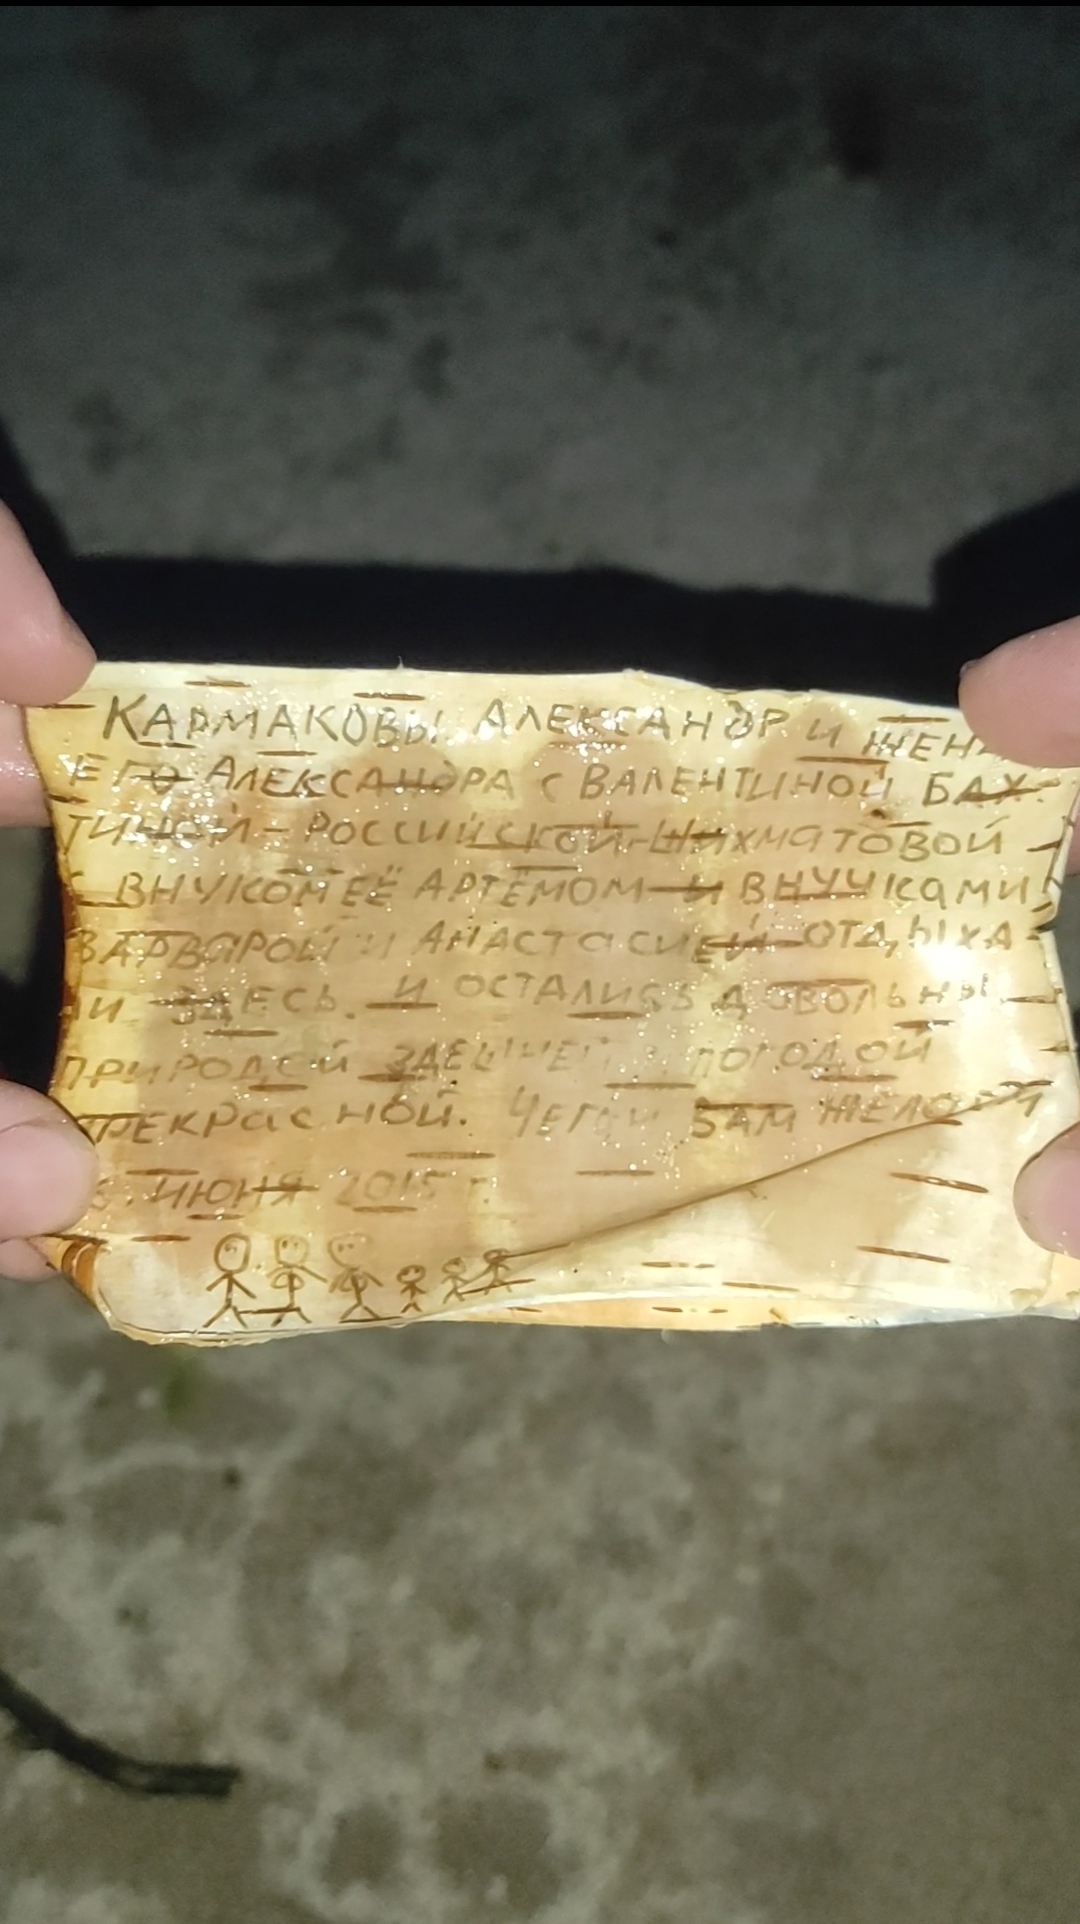 Кармаковы Александр и жена
его Александра с Валентиной Бах-
тиной-Российской-Шихматовой
с внуком её Артёмом и внучками
Варварой и Анастасией отдыха-
ли здесь. и остались довольны
природой здешней и погодой
прекрасной. Чего и вам желаем
июня 2015 г.